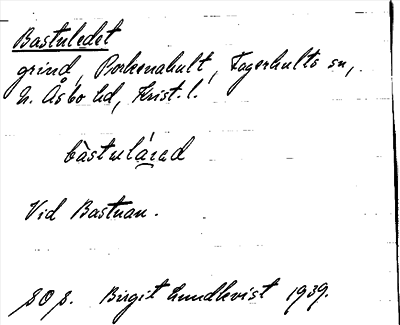 Bastuledet
grind, Porkenahult, Fagerhults sn,
N. Åsbo hd, Krist. l.
bàstulárad
Vid Bastuan.
SOS. Birgit Lundkvist 1939.